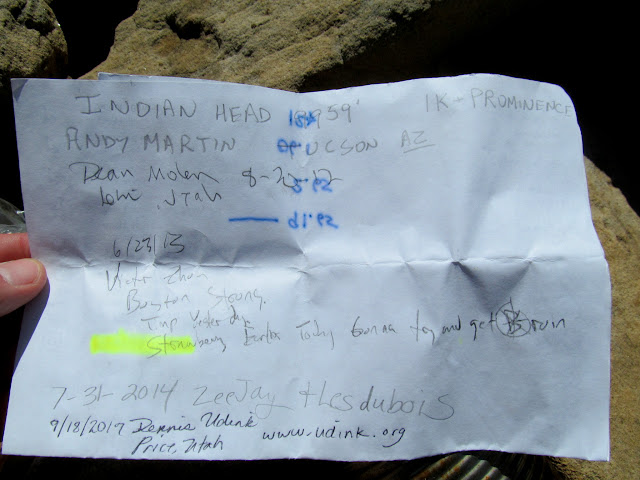 INDIAN HEAD 1K+ PROMINENCE
ANDY MARTIN TUCSON AZ
Dean Molen 8-30-12
Utah
6/23/13
Victor Zhou
Boyston Strong.
Yesterday
Strawberry Earlier Today Gonna try and get
7-31-2014 ZeeJay + Lesdubois
9/18/2017 Dennis Udink www.udink.org
Price, Utah